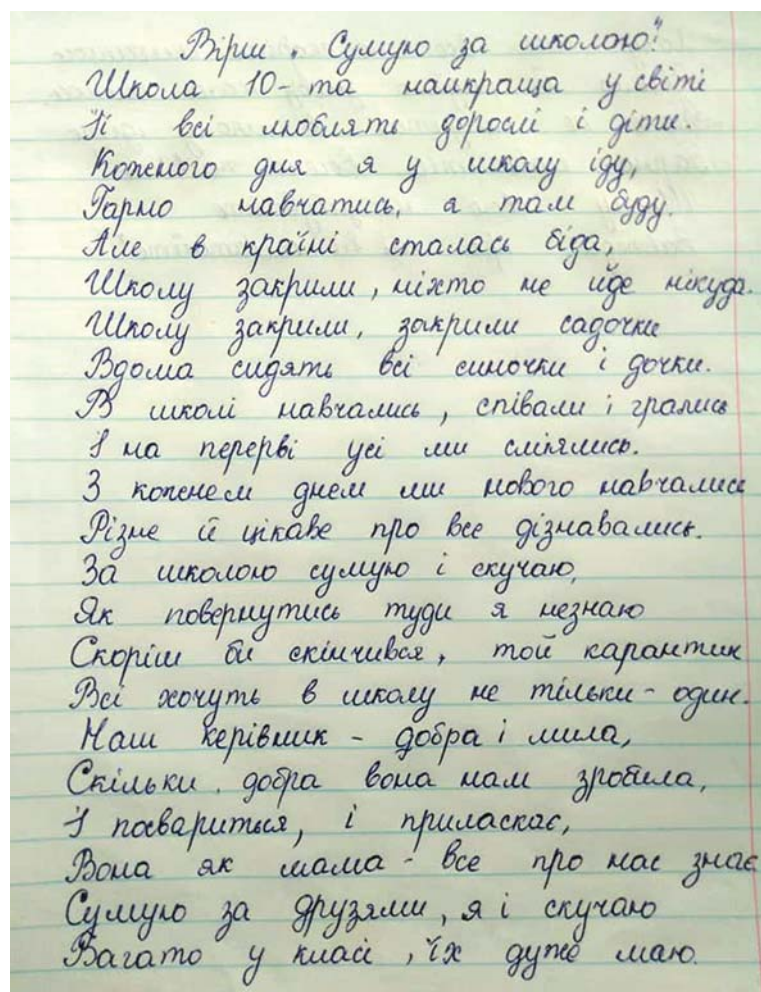 Вірш "Сумую за школою!"
Школа 10-та найкраща у світі
Її всі люблять дорослі і діти.
Кожного дня я у школу іду,
Гарно навчатись, я там буду.
Але в країні сталась біда,
Школу закрили, ніхто не йде нікуда.
Школу закрили, закрили садочки
Вдома сидять всі синочки і дочки.
В школі навчались, співали і грались
І на перерві усі ми сміялись.
З кожнем днем ми нового навчались
Різне й цікаве про все дізнавались.
За школою сумую і скучаю,
Як повернутись туди я незнаю
Скоріш би скінчився, той карантин
Всі хочуть в школу не тільки - один.
Наш керівник - добра і мила,
Скільки добра вона нам зробила,
І посвариться, і приласкає,
Вона як мама - все про нас знає
Сумую за друзями, я і скучаю
Багато у класі, їх дуже маю.